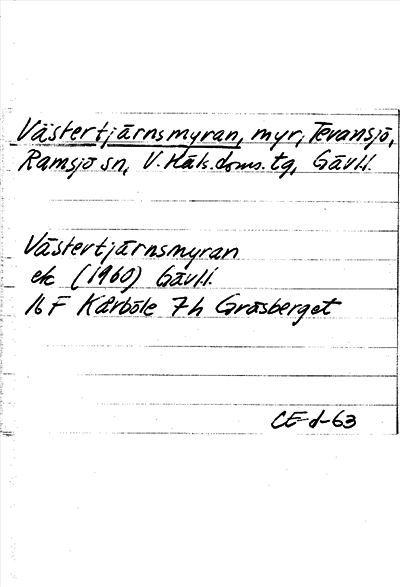 Västertjärnsmyran, myr, Tevansjö,
Ramsjö sn, V. Häls. doms. tg, Gävll.
Västertjärnsmyran
ek (1960) Gävll.
16 F Kårböle 7h Gräsberget
CE-d-63